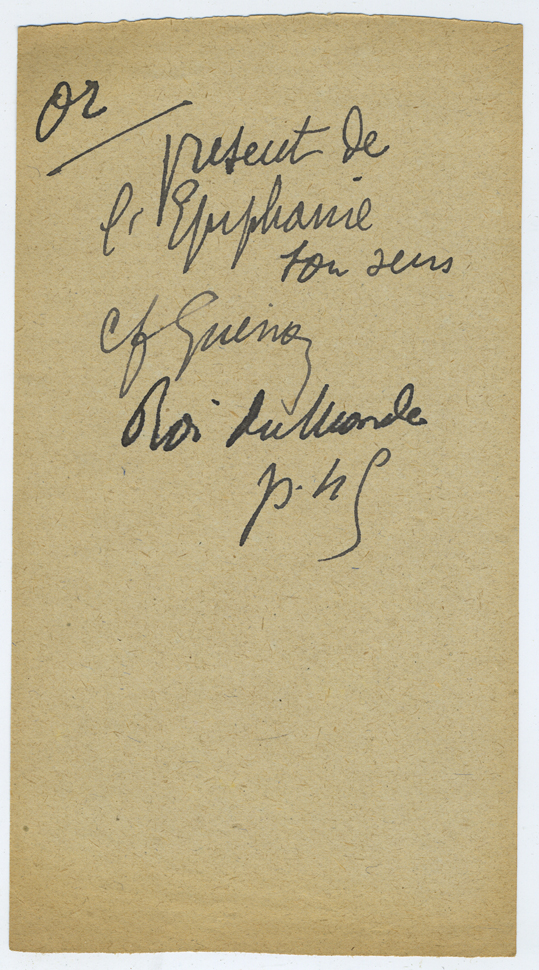 or
présent de
l'Epiphanie
son sens
cf Guénon
Roi du Monde
p. 45